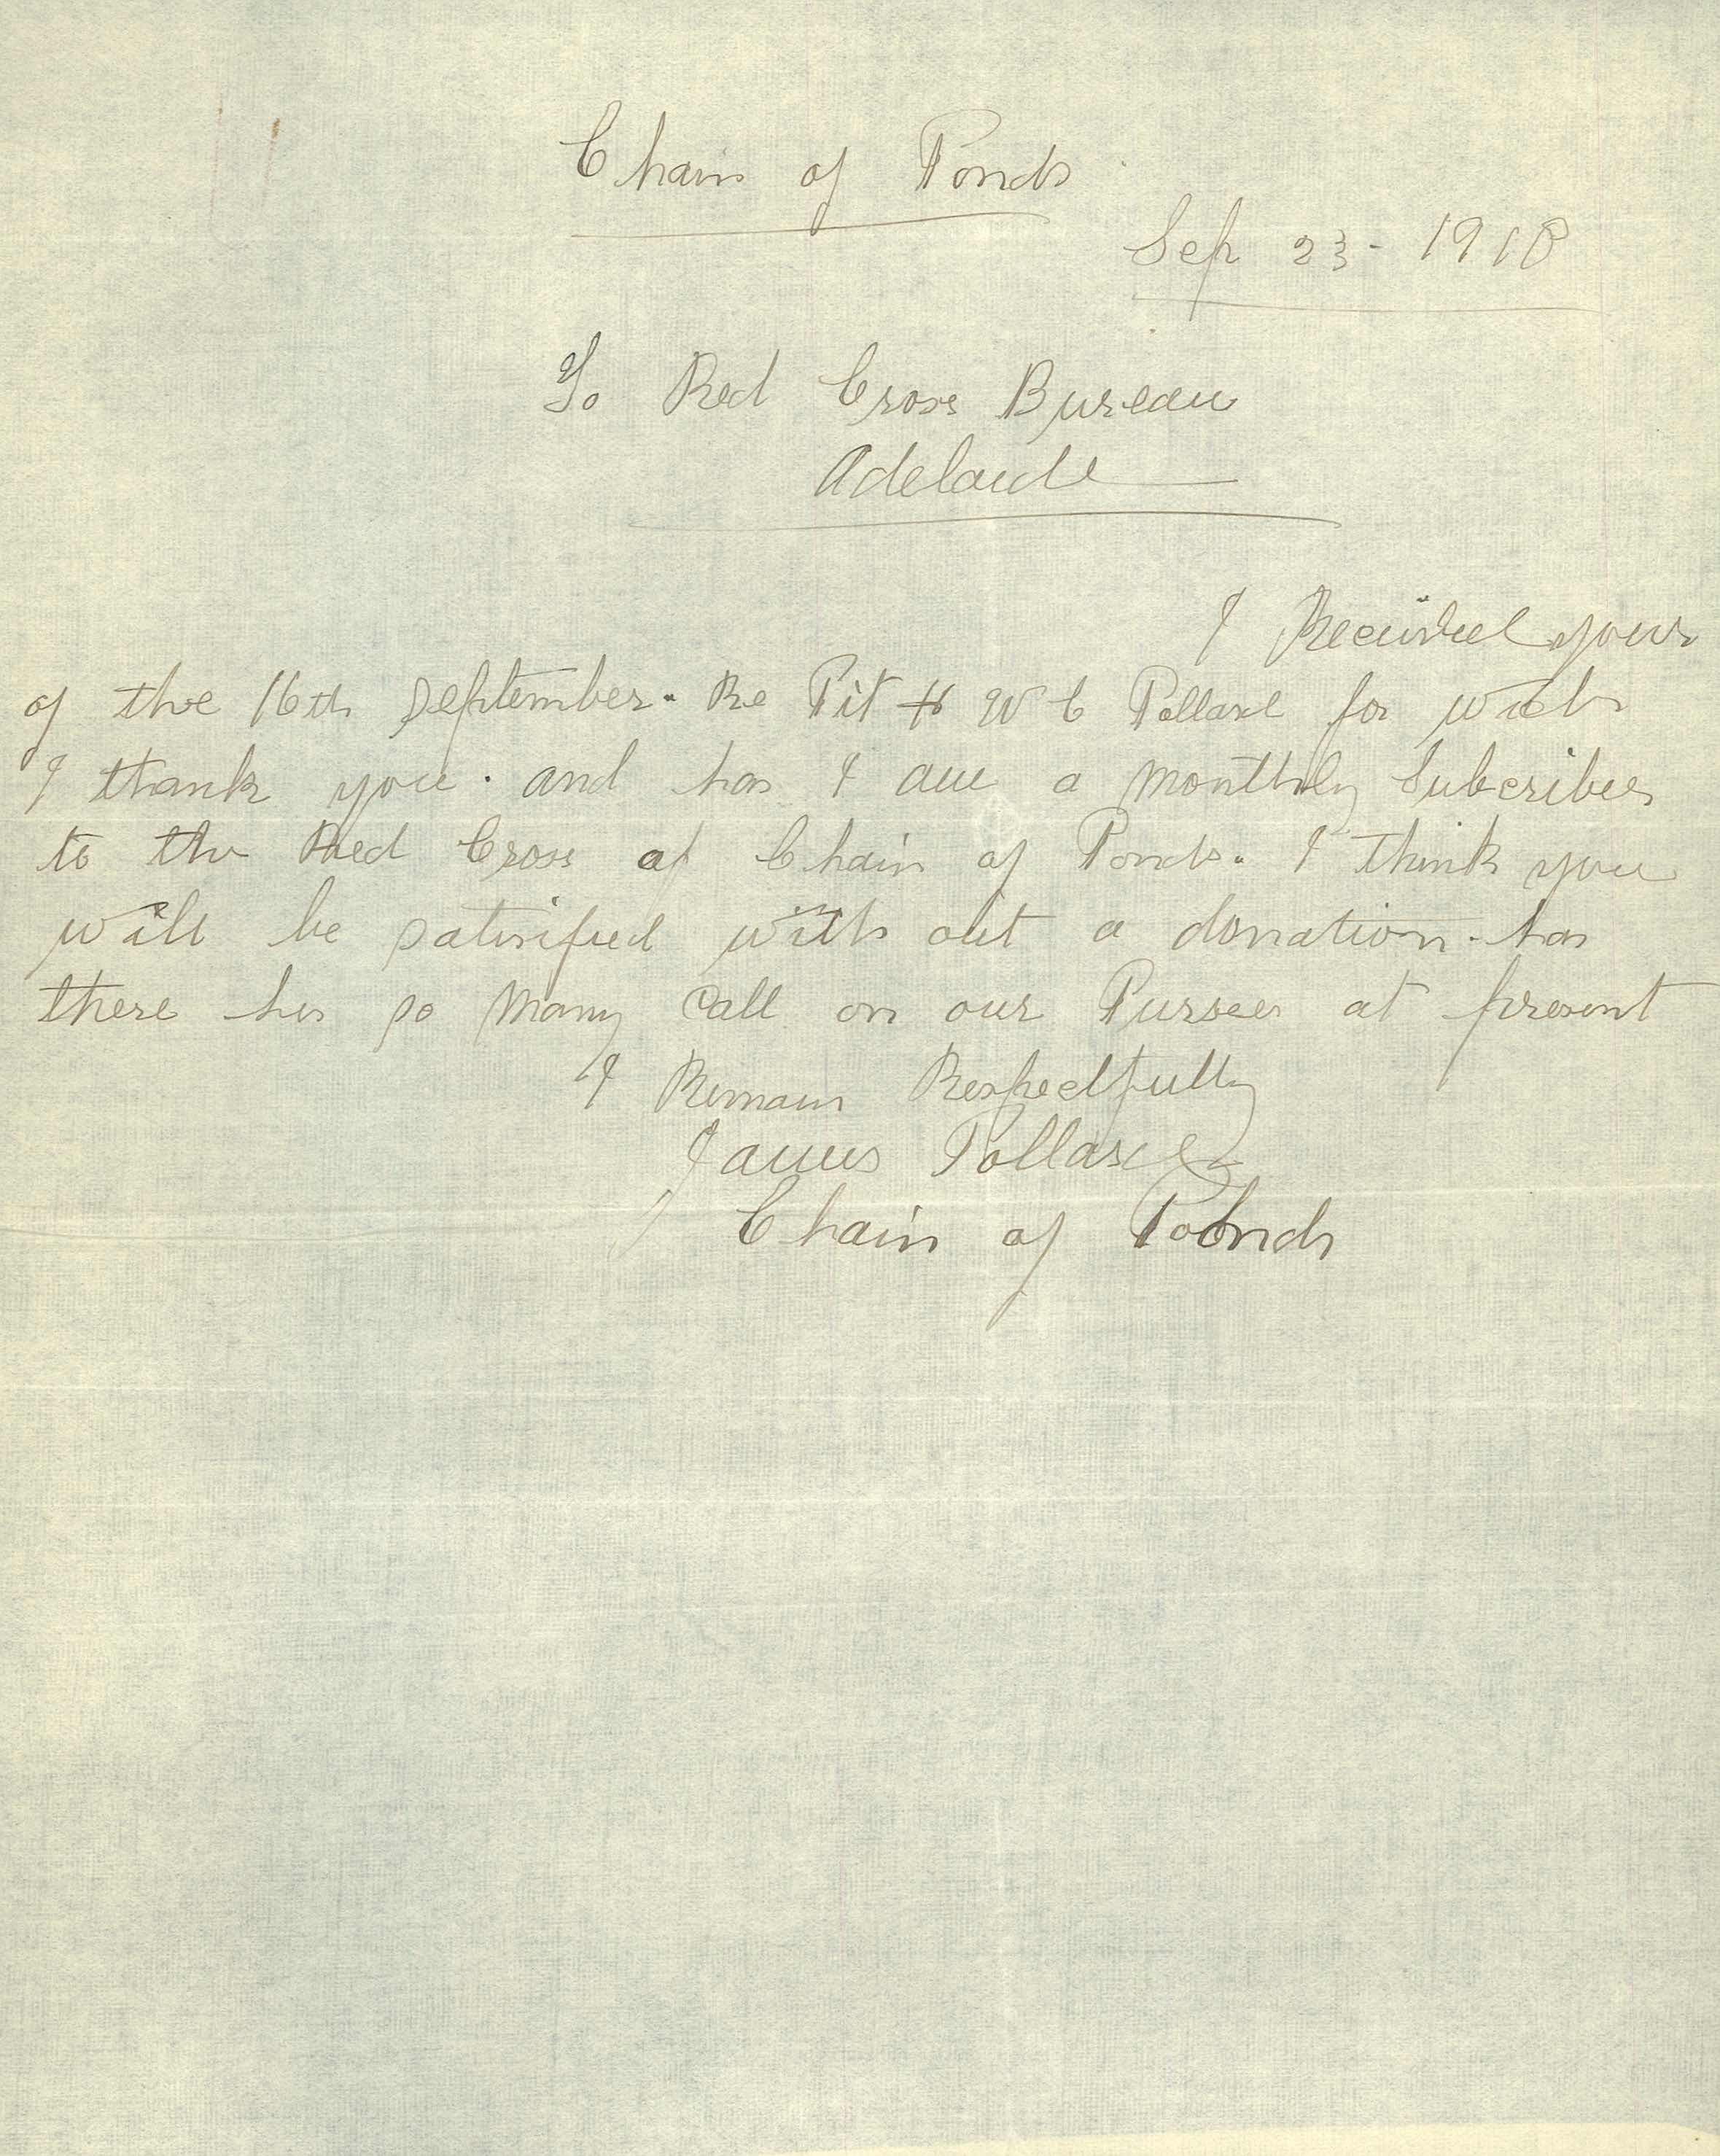 Chain of Ponds
Sep 23 - 1918
To Red Cross Bureau
Adelaide
I Recieved yours
of the 16th September. Re Pit H W C Pollard for wich
I thank you. and has I am a monthly Subcriber
to the Red Cross at Chain of Ponds. I think you
will be satisified with out a donation. has
there his so Many Call on our Purses at present
I Remain Respectfully
James Pollard
Chain of Ponds